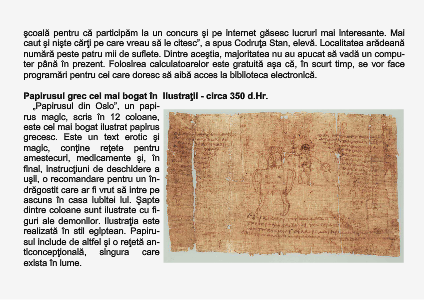 școală pentru că participăm la un concurs și pe internet găsesc lucruri mai interesante. Mai
caut și niște cărți pe care vreau să le citesc”, a spus Codruța Stan, elevă. Localitatea arădeană
numără peste patru mii de suflete. Dintre aceștia, majoritatea nu au apucat să vadă un compu-
ter până în prezent. Folosirea calculatoarelor este gratuită așa că, în scurt timp, se vor face
programări pentru cei care doresc să aibă acces la biblioteca electronică.
Papirusul grec cel mai bogat în ilustrații - circa 350 d.Hr.
„Papirusul din Oslo”, un papi-
rus magic, scris în 12 coloane,
este cel mai bogat ilustrat papirus
grecesc. Este un text erotic și
magic, conține rețete pentru
amestecuri, medicamente și, în
final, instrucțiuni de deschidere a
ușii, o recomandare pentru un în-
drăgostit care ar fi vrut să intre pe
ascuns în casa iubitei lui. Șapte
dintre coloane sunt ilustrate cu fi-
guri ale demonilor. Ilustrația este
realizată în stil egiptean. Papiru-
sul include de altfel și o rețetă an-
ticoncepțională, singura care
exista în lume.